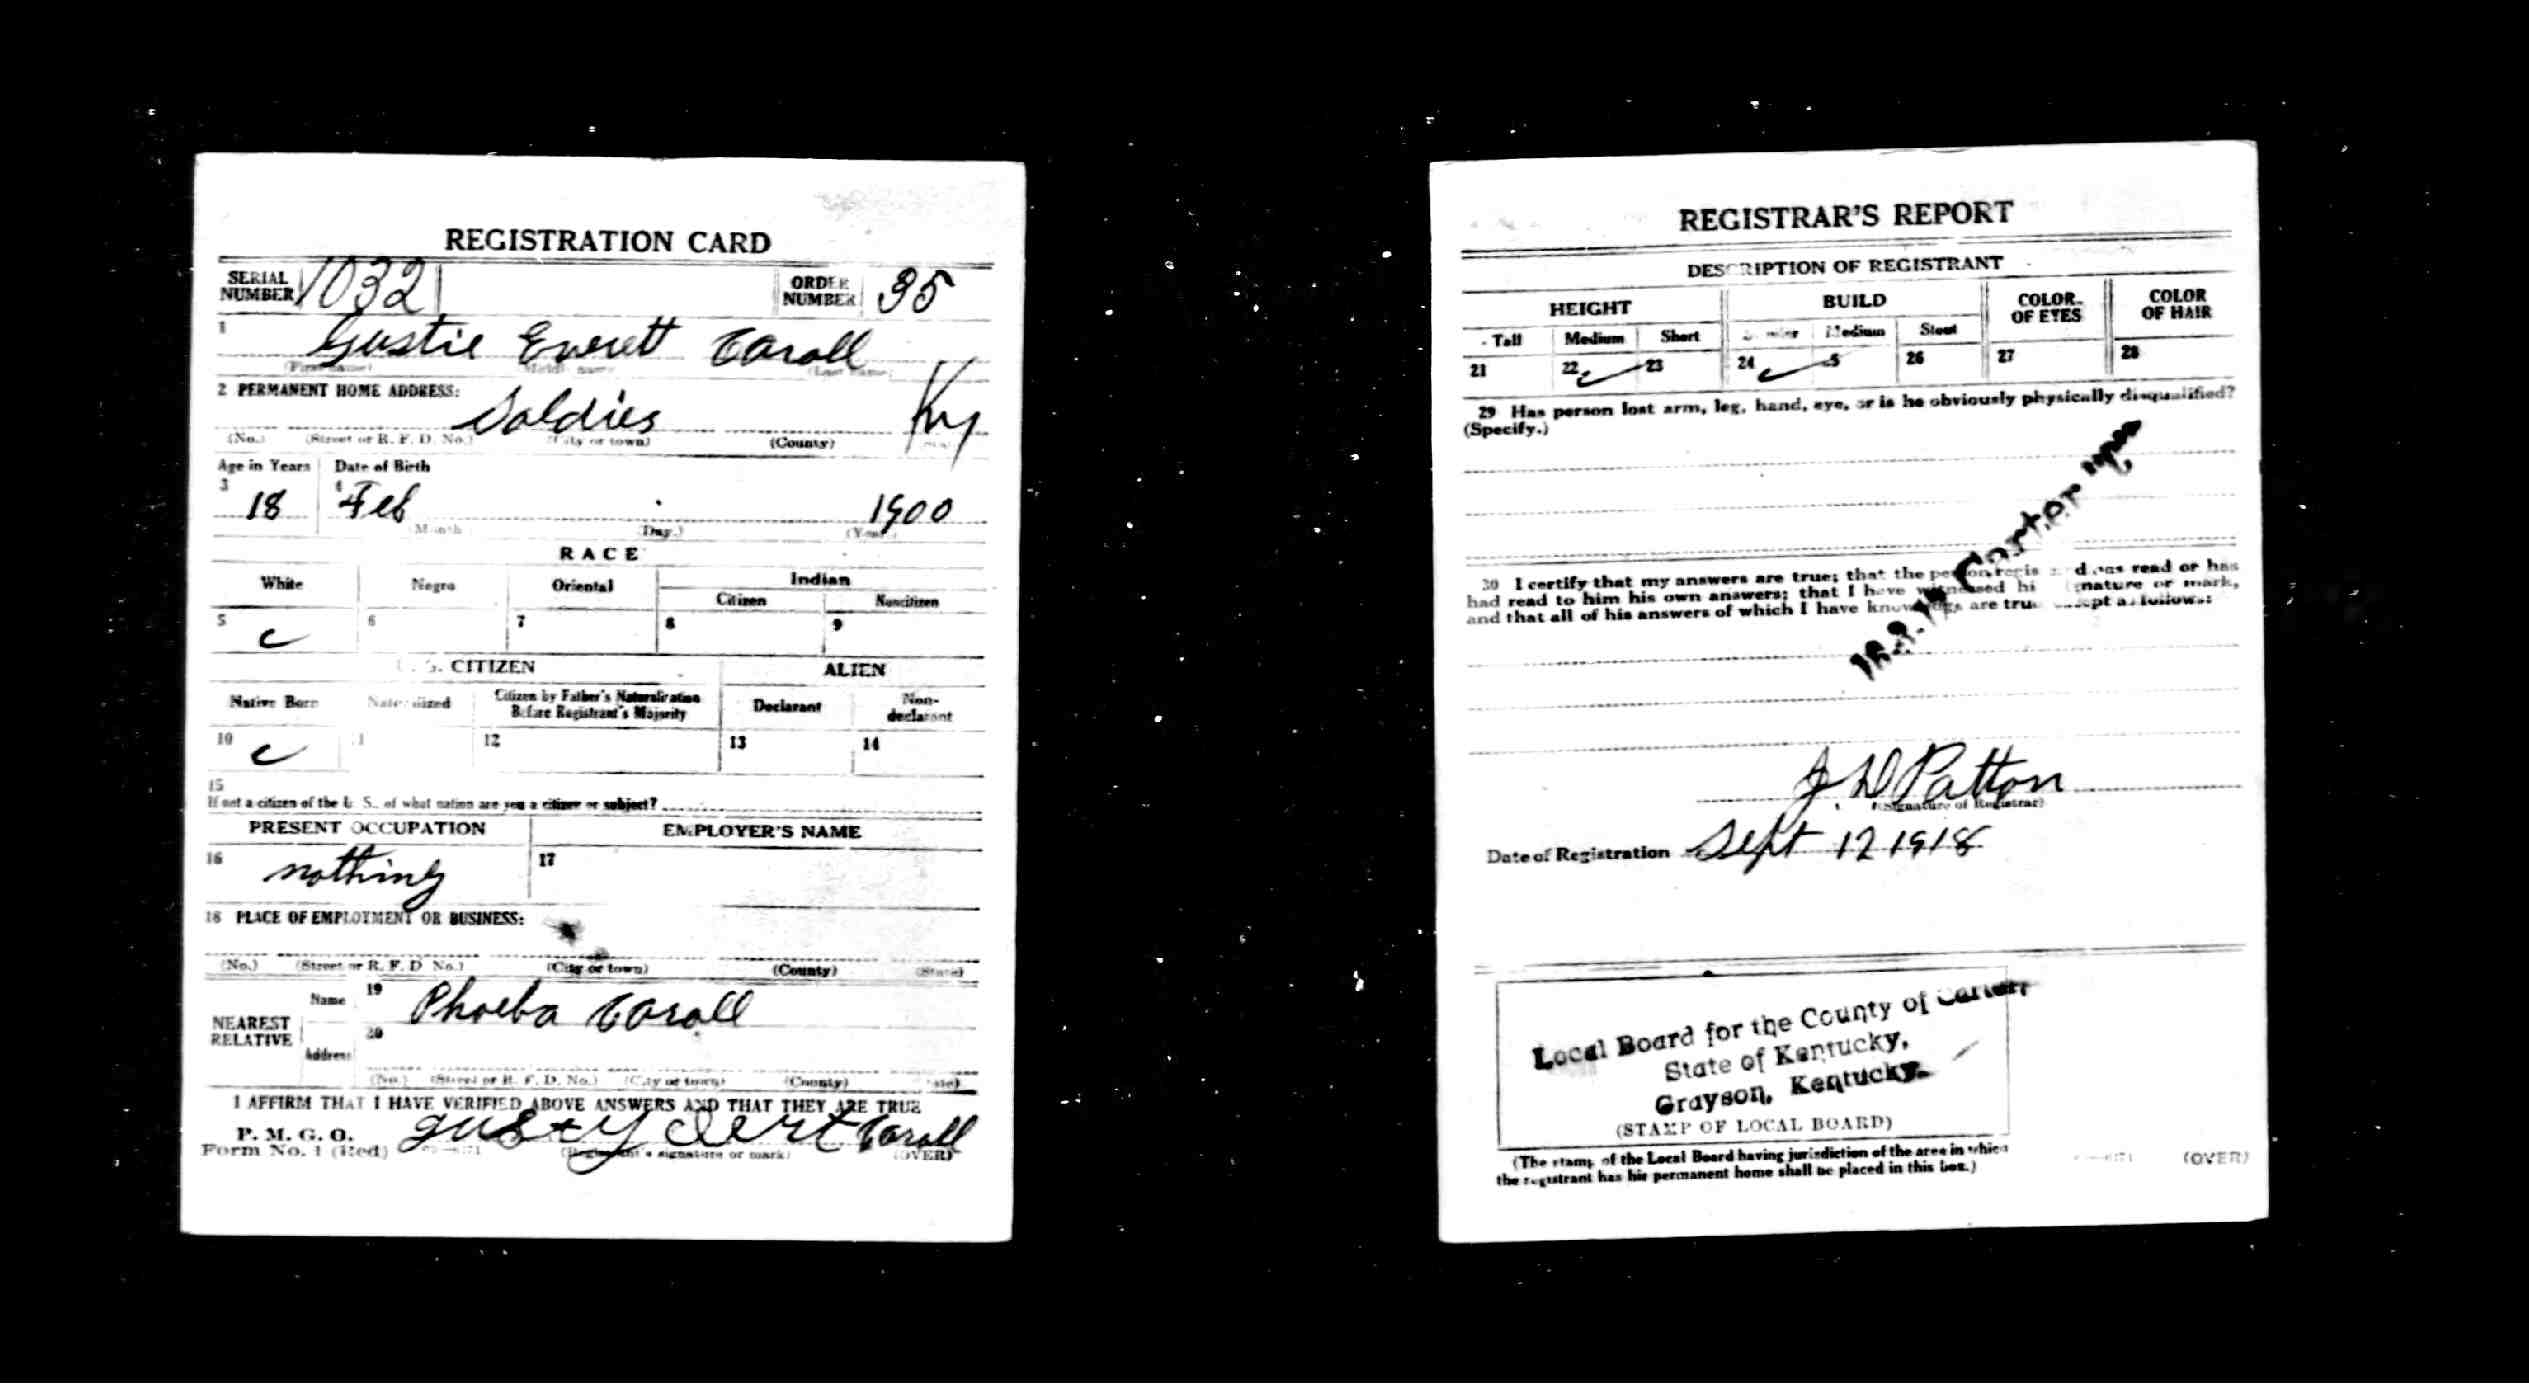 REGISTRATION CARD
SERIAL NUMBER 1032 ORDER NUMBER 35
1 Gustie Everett Caroll
(First name) (Middle name) (Last name)
2 PERMANENT HOME ADDRESS:
Soldies Ky
(No.) (Street or R. F. D. No.) (City or town) (County)
Age in Years Date of Birth
3 18 4 Feb 1900
(Month) (Day.) (Year)
RACE
White Negro Oriental Indian
Citizen Noncitizen
5 6 7 8 9
U. S. CITIZEN ALIEN
Native Born Naturalized Citizen by Father's Naturalization Before Registrant's Majority Declarant Non-declarant
10 11 12 13 14
15
If not a citizen of the U. S., of what nation are you a citizen or subject?
PRESENT OCCUPATION EMPLOYER'S NAME
16 nothing 17
18 PLACE OF EMPLOYMENT OR BUSINESS:
(No.) (Street or R. F. D. No.) (City or town) (County) (State)
NEAREST RELATIVE Name 19 Phoeba Caroll
Address 20
(No.) (Street or R. F. D. No.) (City or town) (County) (State)
I AFFIRM THAT I HAVE VERIFIED ABOVE ANSWERS AND THAT THEY ARE TRUE
P. M. G. O.
Form No. 1 (Red) gusty Caroll
(Registrant's signature or mark) (OVER)
REGISTRAR'S REPORT
DESCRIPTION OF REGISTRANT
HEIGHT BUILD COLOR OF EYES COLOR OF HAIR
Tall Medium Short Slender Medium Stout
21 22 23 24 25 26 27 28
29 Has person lost arm, leg, hand, eye, or is he obviously physically disqualified?
(Specify.)
30 I certify that my answers are true; that the person registered has read or has
had read to him his own answers; that I have witnessed his signature or mark,
and that all of his answers of which I have knowledge are true, except as follows:
Carter
J W Patton
(Signature of Registrar)
Date of Registration Sept 12 1918
Local Board for the County of Carter,
State of Kentucky,
Grayson, Kentucky.
(STAMP OF LOCAL BOARD)
(The stamp of the Local Board having jurisdiction of the area in which
the registrant has his permanent home shall be placed in this box.)
(OVER)